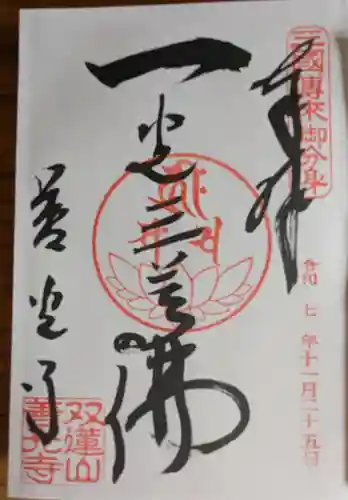 三國傳来御分身
奉拝
令和七年十一月二十五日
一光三尊佛
善光寺
双蓮山
善光寺